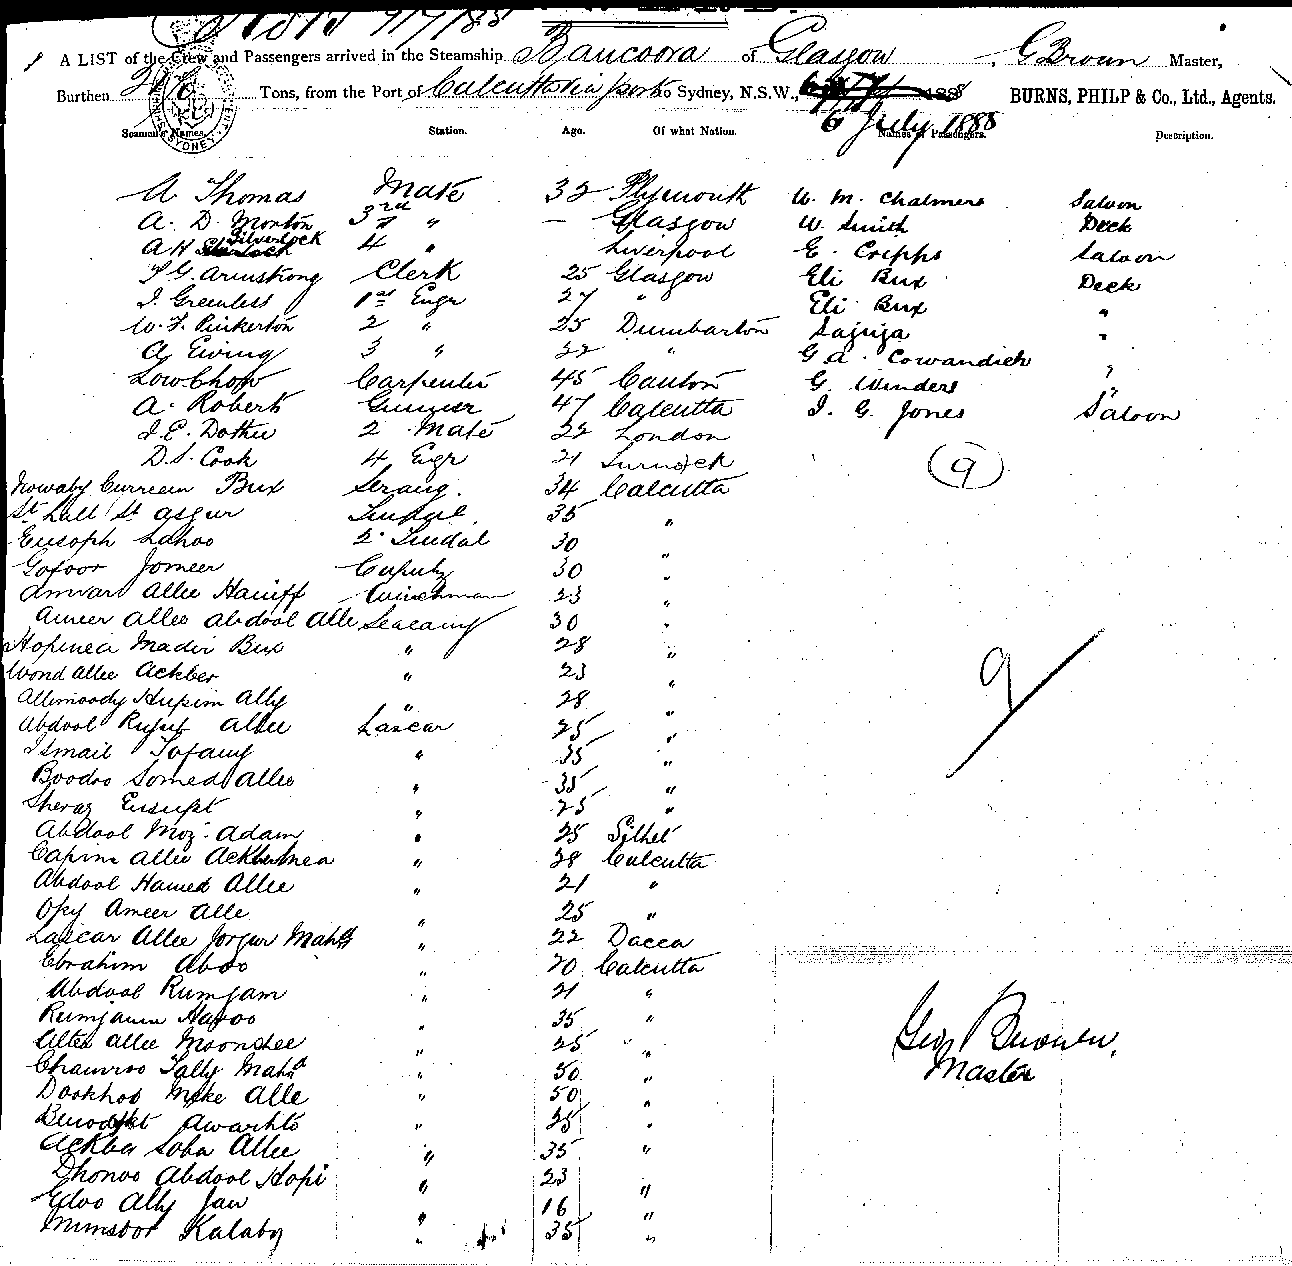 9/7/88
A LIST of the Crew and Passengers arrived in the Steamship Bancoora of Glasgow G Brown Master,
Burthen Tons, from the Port of Calcutta via ports to Sydney, N.S.W., 188
BURNS, PHILP & Co., Ltd., Agents.
6 July 1888
Seamen's Names. Station. Age. Of what Nation. Names of Passengers. Description.
A Thomas Mate 32 Plymouth W. M. Chalmers Saloon
A. D. Morton 3rd " — Glasgow W Smith Deck
A H Silverlock 4 " Liverpool E. Cripps Saloon
T G. Armstrong Clerk 25 Glasgow Eli Bux Deck
J. Greenlest 1st Engr 27 " Eli Bux "
W. F. Pinkerton 2 " 25 Dumbarton Sajuja "
A Ewing 3 " 22 " G A. Cowandich "
Low Chow Carpenter 45 Canton G. Winders "
A. Robert Gunner 47 Calcutta J. G. Jones Saloon
J. E. Dother 2 Mate 22 London
D. S. Cook 4 Engr 21 (9)
Nowaby Curreem Bux Serang. 34 Calcutta
St Lall St Asgur Tindal. 35 "
Eusoph Lahoo 2 Tindal 30 "
Gofoor Jomeer 30 "
Anwar Allee Haniff Winchman 23 "
Ameer Allee Abdool Alle Seacany 30 "
Hopinea Madir Bux " 28 "
Wond Allee Ackber " 23 "
9
Allimoody Hupim Ally " 28 "
Abdool Rufuf Allee Lascar 25 "
Ismail Tofany " 35 "
Boodoo Somed Allee " 35 "
Sheraz Eusupt " 25 "
Abdool Moz. Adam " 25 Silhet
Capim Allee Ackbermea " 28 Calcutta
Abdool Hamed Allee " 21 "
Opy Ameer Alle " 25 "
Lascar Allee Jorgur Mahtt " 22 Dacca
Ebrahim Aboo " 20 Calcutta
Abdool Rumjam " 21 "
Rumjaum Haroo " 35 "
Alter Allee Moonshee " 25 "
Geo Brown,
Master
Chamroo Tally Maht " 50 "
Dookhoo Meke Alle " 50 "
Awarhlo " 25 "
Ackber Soba Allee " 35 "
Dhonoo Abdool Hopi " 23 "
Edoo Ally Jan " 16 "
Mimsoor Kalaboy " 35 "